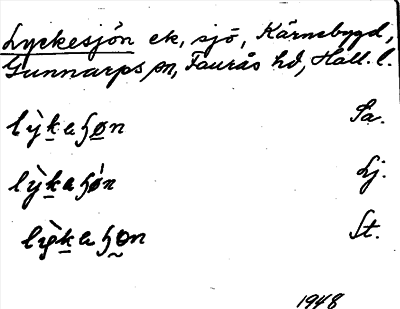 Lyckesjön ek, sjö, Kärnebygd,
Gunnarps sn, Faurås hd, Hall. l.
lỳkaɧon Sa.
lỳkaɧón Lj.
lỳkaɧon St.
1948